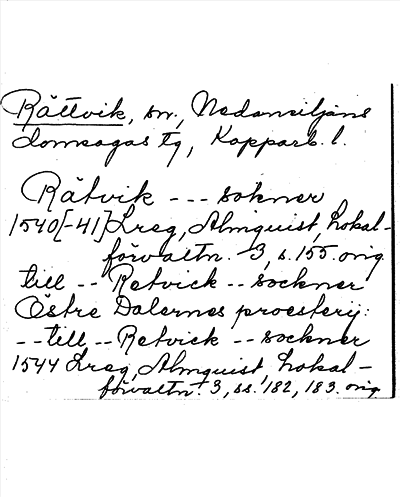 Rättvik, sn., Nedansiljans
domsagas tg, Kopparb. l.
Rätvik --- sokner
1540[-41] Lreg, Almquist, Lokal-
förvaltn. 3, s. 155. orig.
till -- Retvick -- sockner
Östre Dalernes proesterij:
-- till -- Retvick -- sockner
1544 Lreg, Almquist Lokal-
förvaltn. 3, ss. 182, 183. orig.